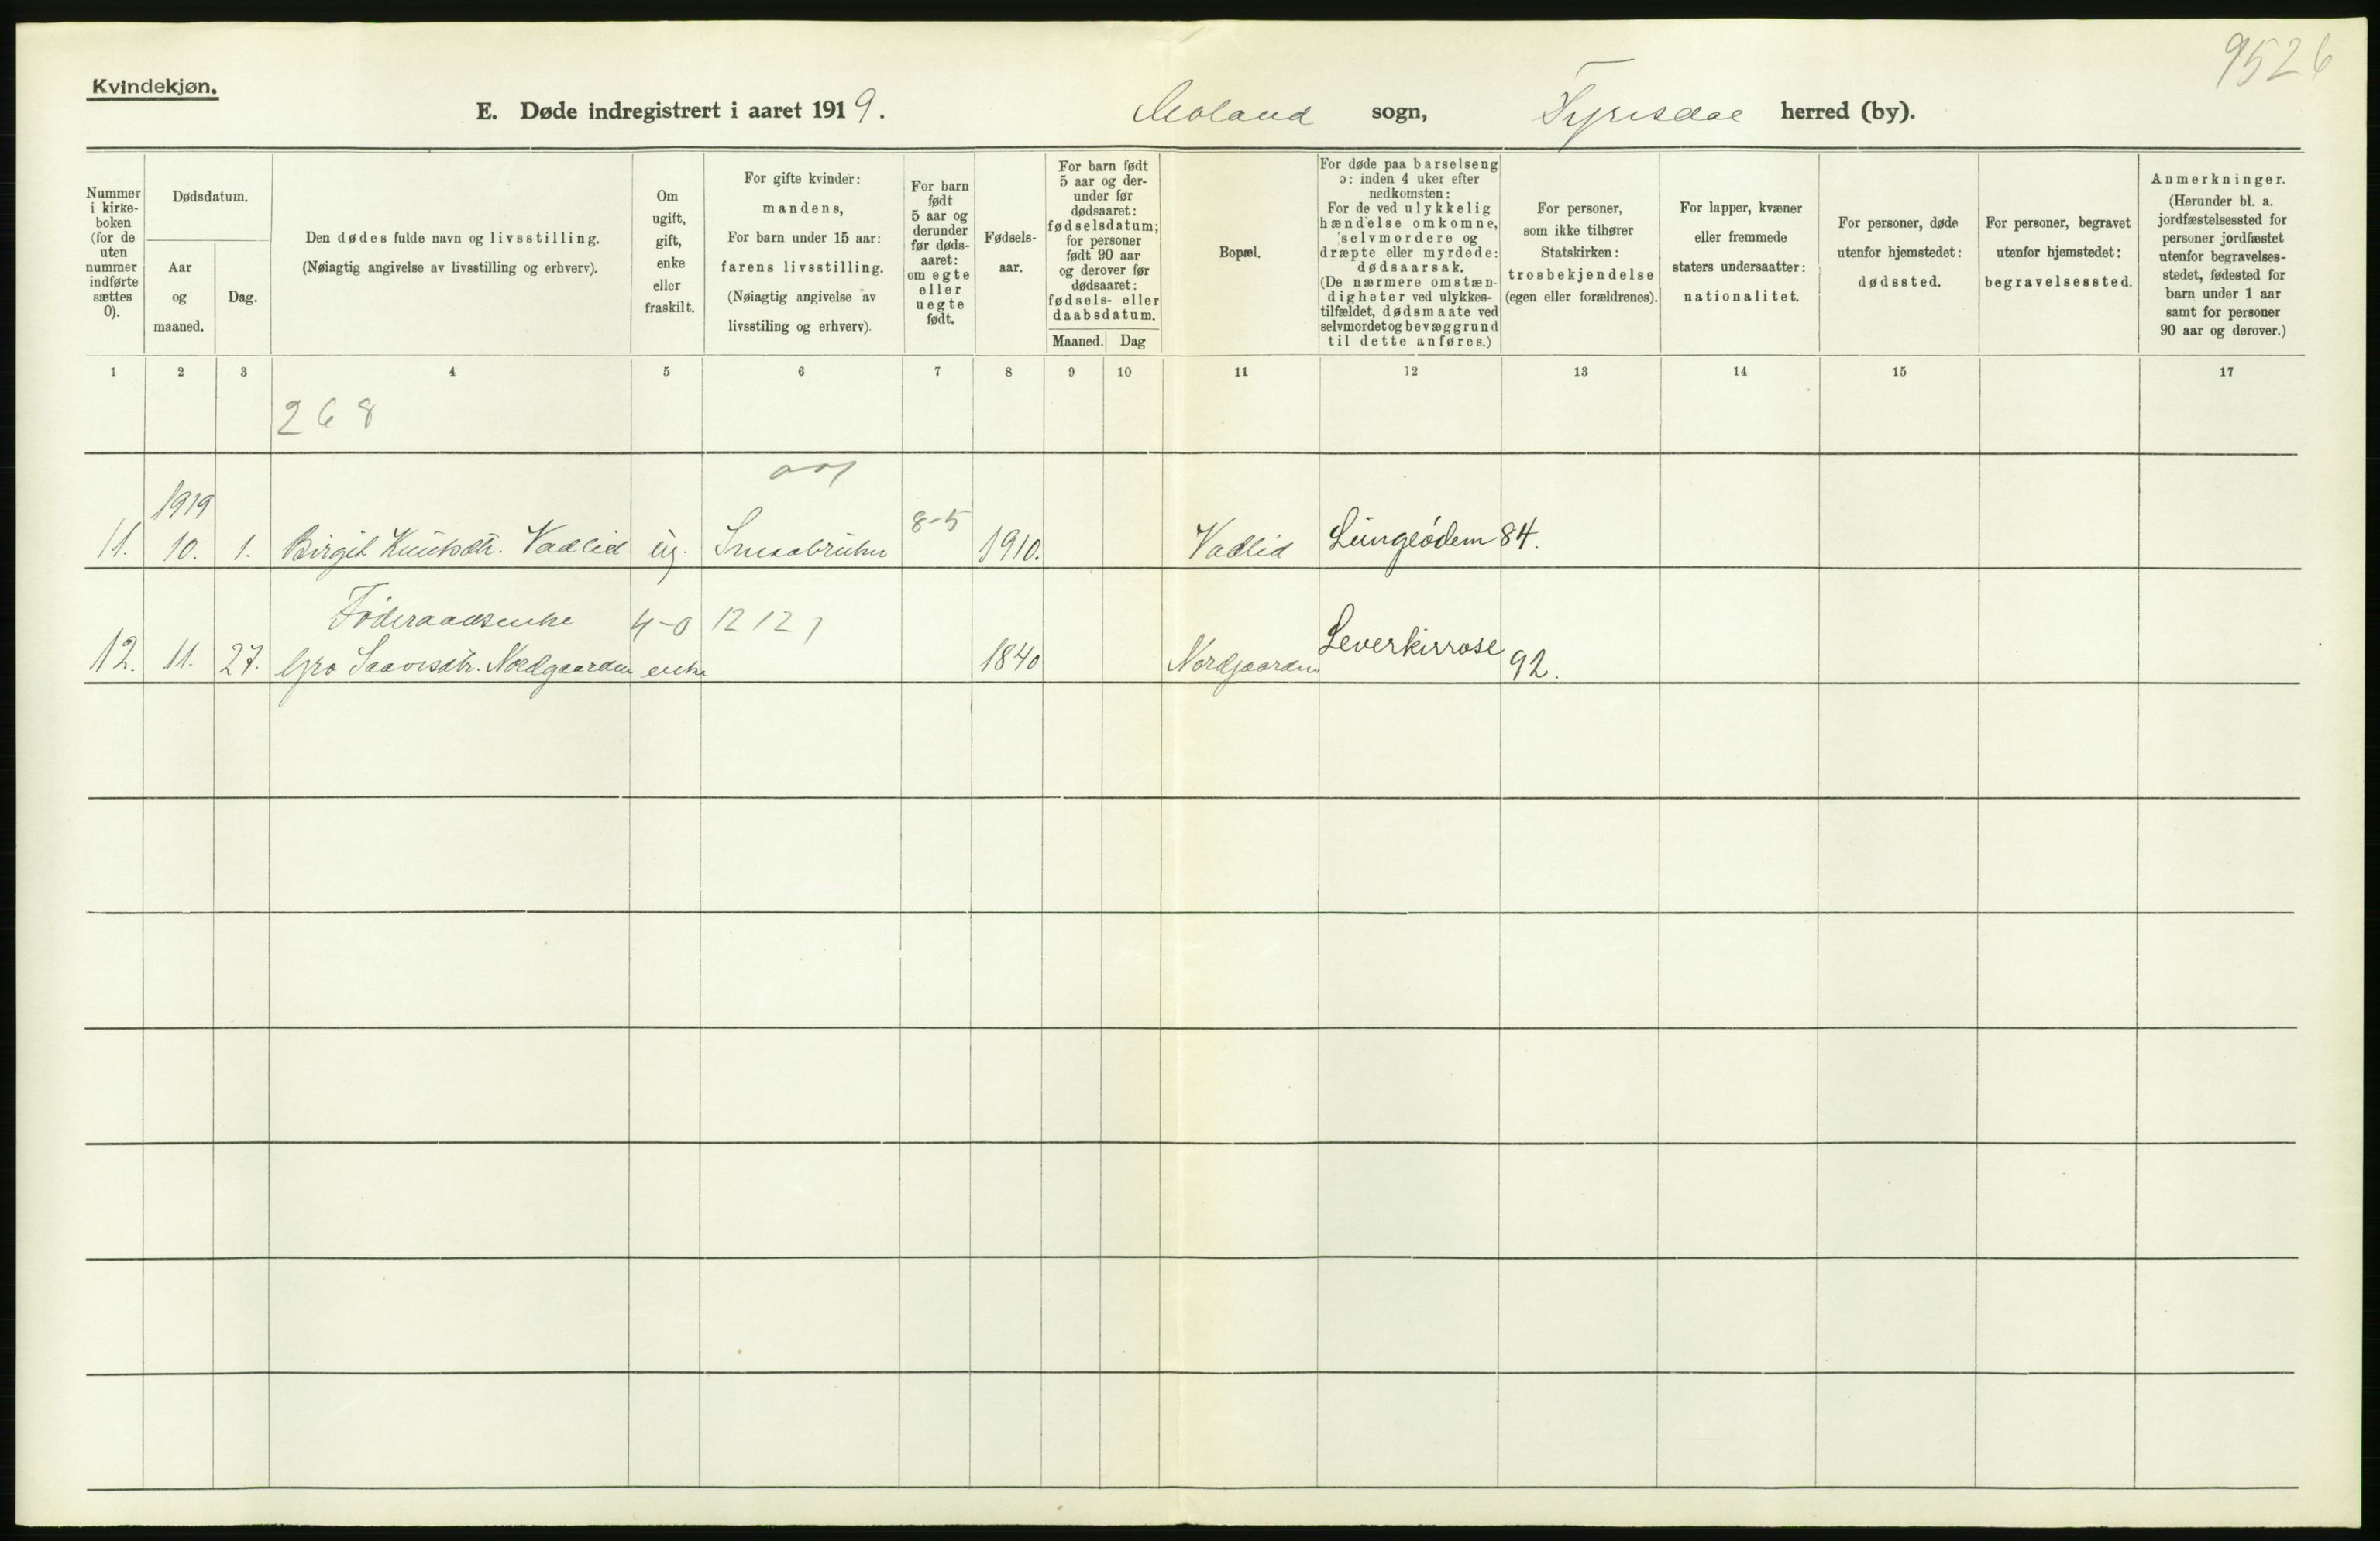 9526
Kvindekjøn.
E. Døde indregistrert i aaret 1919. Moland sogn, Tyrisdal herred (by).
Nummer i kirke- boken (for de uten nummer indførte sættes 0).
Dødsdatum.
Aar og maaned.
Dag.
Den dødes fulde navn og livsstilling.
(Nøiagtig angivelse av livsstilling og erhverv).
Om ugift, gift, enke eller fraskilt.
For gifte kvinder:
mandens,
For barn under 15 aar:
farens livsstilling.
(Nøiagtig angivelse av
livsstiling og erhverv).
For barn født 5 aar og derunder før døds- aaret: om egte eller uegte født.
Fødsels- aar.
For barn født 5 aar og der- under før dødsaaret: fødselsdatum; for personer født 90 aar og derover før dødsaaret: fødsels- eller daabsdatum.
Maaned. Dag
Bopæl.
For døde paa barselseng
ɔ: inden 4 uker efter
nedkomsten:
For de ved ulykkelig
hændelse omkomne,
selvmordere og
dræpte eller myrdede:
dødsaarsak.
(De nærmere omstæn-
digheter ved ulykkes-
tilfældet, dødsmaate ved
selvmordet og bevæggrund
til dette anføres.)
For personer,
som ikke tilhører
Statskirken:
trosbekjendelse
(egen eller forældrenes).
For lapper, kvæner
eller fremmede
staters undersaatter:
nationalitet.
For personer, døde
utenfor hjemstedet:
dødssted.
For personer, begravet
utenfor hjemstedet:
begravelsessted.
Anmerkninger.
(Herunder bl. a.
jordfæstelsessted for
personer jordfæstet
utenfor begravelses-
stedet, fødested for
barn under 1 aar
samt for personer
90 aar og derover.)
1 2 3 4 5 6 7 8 9 10 11 12 13 14 15 17
268
1919 8-5
11. 10. 1. Birgit Knutsdtr. Vadlid ug. Smaabruker 1910. Vadlid Lungeödem 84.
Föderaadsenke 4-0 12 12 1
12. 11. 27. Gro Saavesdtr. Nordgaarden enke 1840 Nordgaarden Leverkirrose 92.